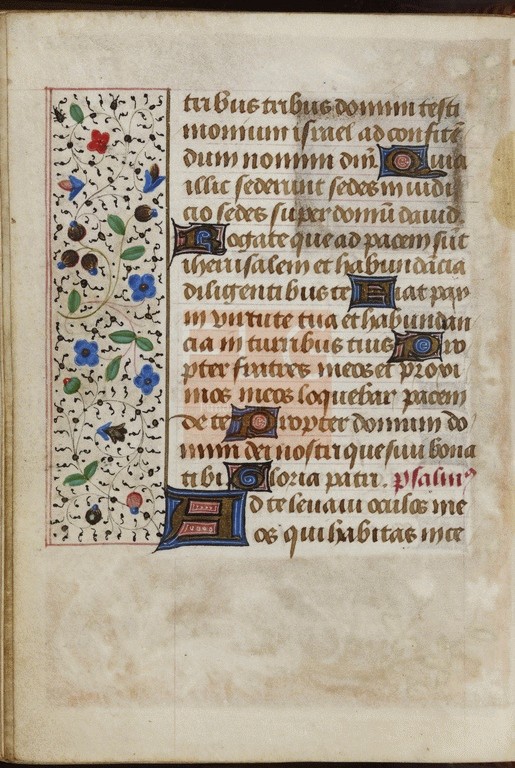 tribus tribus domini testi
monium israel ad confitē
dum nomini dn̄i Quia
illic sederunt sedes in iudi
cio sedes super domū dauid.
Rogate que ad pacem sūt
iherusalem et habundācia
diligentibus te Fiat pax
in virtute tua et habundan
cia in turribus tuis Pro
pter fratres meos et proxi
mos meos loquebar pacem
de te Propter domum do
mini dei nostri quesiui bona
tibi Gloria patri. psalmꝰ
Ad te leuaui oculos me
os qui habitas in ce